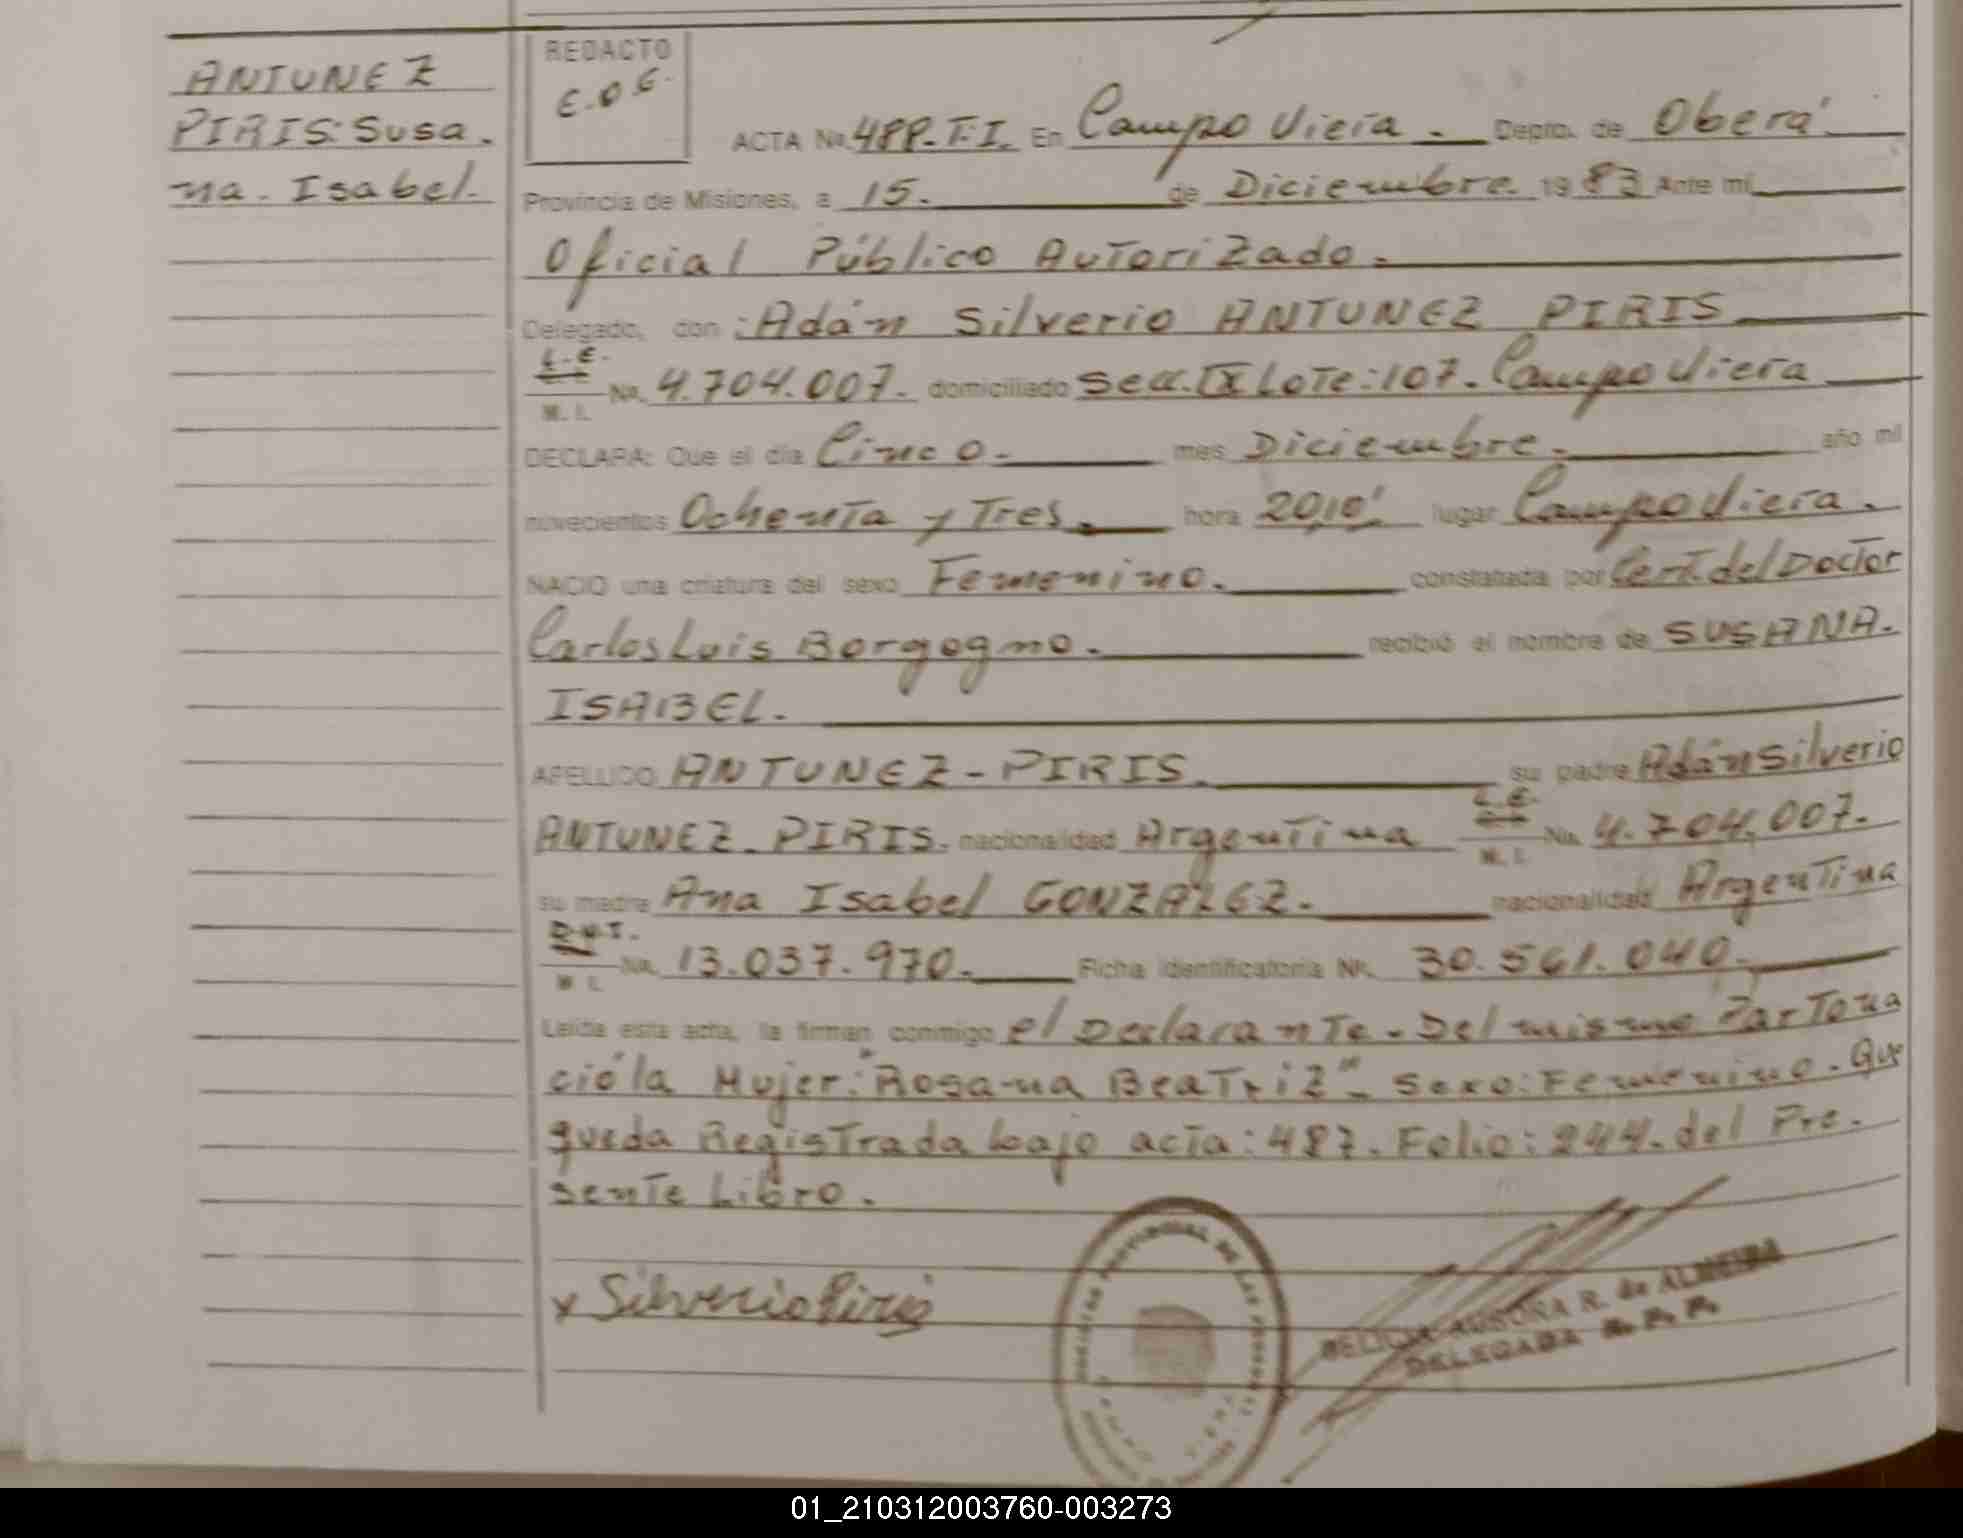 ANTUNEZ
PIRIS: Susa.
na. Isabel.
REDACTO
E.O.G.
ACTA No. 488-T:I. En Campo Viera. Depto. de Oberá
Provincia de Misiones, a 15. de Diciembre. 1983 Ante mí
Oficial Público Autorizado.
Delegado, don: Adán Silverio ANTUNEZ PIRIS
L.E.
M. I. No. 4.704.007. domiciliado Secc. IX Lote: 107. Campo Viera
DECLARA: Que el día Cinco. mes Diciembre. año mil
novecientos Ochenta y Tres. hora 20,10' lugar Campo Viera.
NACIO una criatura del sexo Femenino. constatada por Cert. del Doctor
Carlos Luis Borgogno. recibió el nombre de SUSANA.
ISABEL.
APELLIDO ANTUNEZ-PIRIS. su padre Adán Silverio
ANTUNEZ. PIRIS. nacionalidad Argentina L.E. M. I. No. 4.704.007.
su madre Ana Isabel GONZALEZ. nacionalidad Argentina
D.N.I.
M. I. No. 13.037.970. Ficha Identificatoria No. 30.561.040.
Leída esta acta, la firman conmigo el Declarante. Del mismo Parto na
ció la Mujer: "Rosana Beatriz" Sexo: Femenino. Que
queda Registrada bajo acta: 487. Folio: 244. del Pre.
sente Libro.
x Silverio Piris
PROVINCIAL DE LAS
R. de ALMEIDA
DELEGADA R. P. P.
01_210312003760-003273